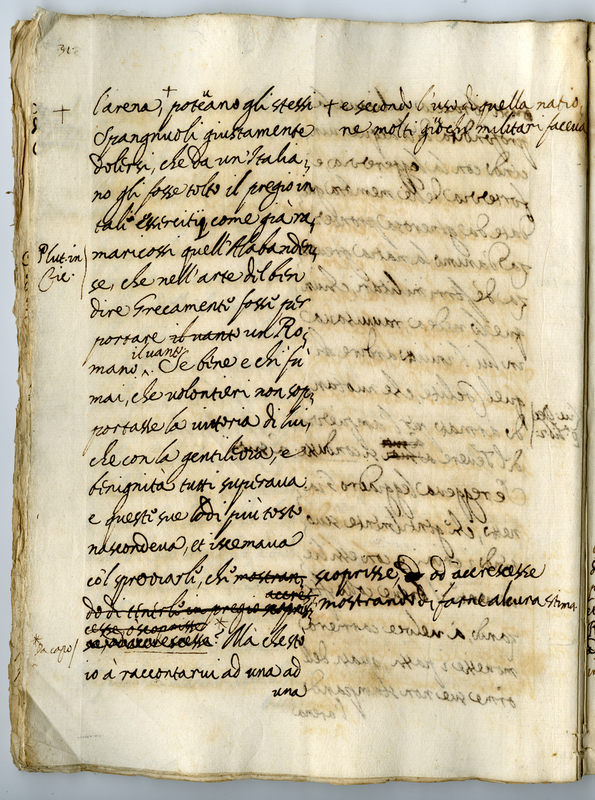 31
l'arena, + poteuano gli stessi
+ e secondo l'uso di quella natio,
ne molti giochi militari faceua
Spangnuoli giustamente
dolersi, che da un'Italia,
no gli fosse tolto il pregio in
tali essercitij, come già ra,
Plut. in
Cic.
maricossi quell'Alabanden,
se, che nell'arte del ben
dire Grecamente fosse per
portare il uanto un Ro,
mano il uanto. Se bene e chi fu
mai, che volontieri non sop,
portasse la uittoria di lui,
che con la gentilezza, e
benignità tutti superaua
e queste sue lodi più tosto
nascondeua, et iscemaua
col sprezzarle, che mostran,
scoprisse, od accrescesse
mostrando di farne alcuna stima
do di tenerle in pregio
accres
cesse, o
* Ma che sto
* Da capo/
io à raccontarui ad una ad
una
l'arena